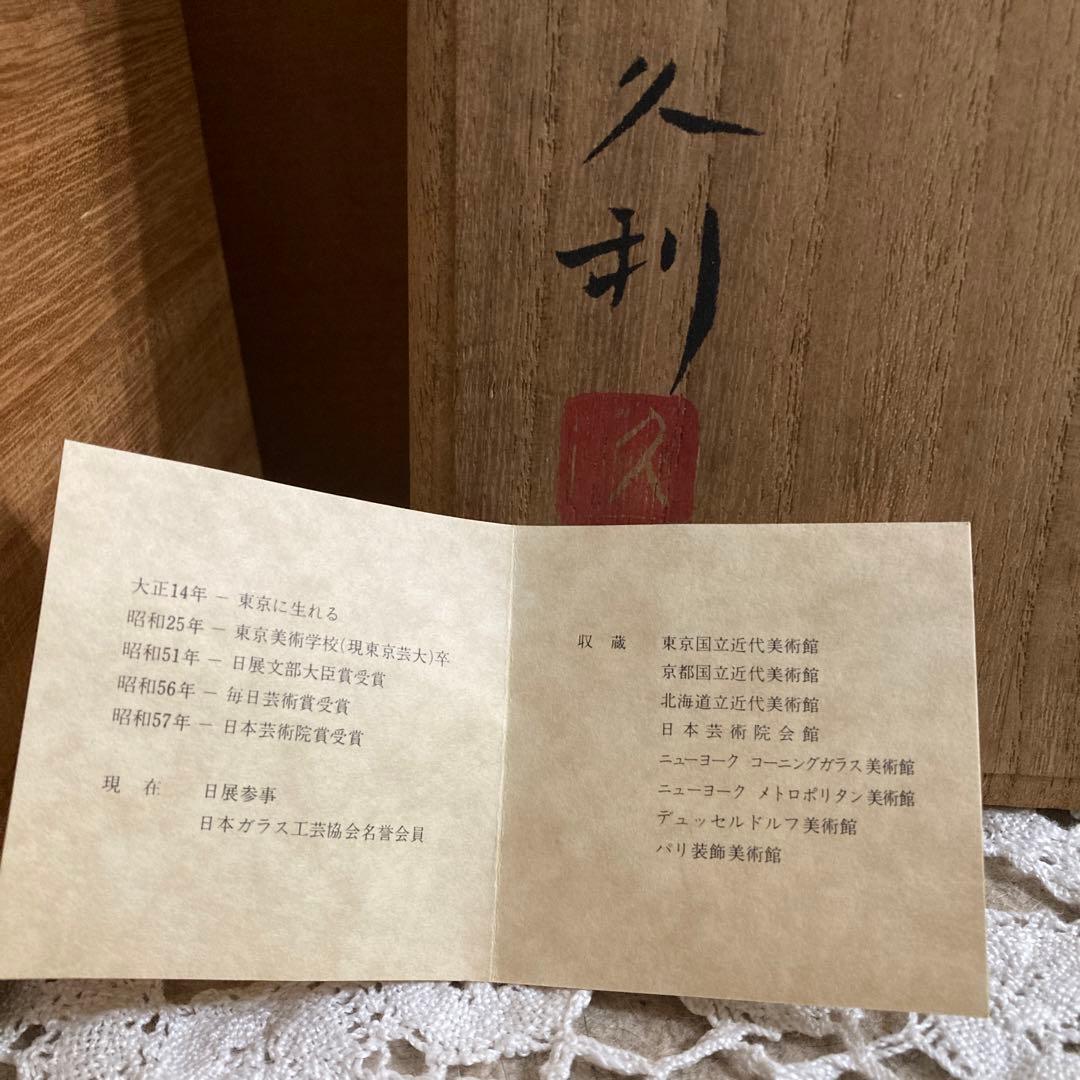 久利
久
大正14年 － 東京に生れる
昭和25年 － 東京美術学校(現東京芸大)卒
昭和51年 － 日展文部大臣賞受賞
昭和56年 － 毎日芸術賞受賞
昭和57年 － 日本芸術院賞受賞
現　在　日展参事
日本ガラス工芸協会名誉会員
収　蔵　東京国立近代美術館
京都国立近代美術館
北海道立近代美術館
日本芸術院会館
ニューヨーク コーニングガラス美術館
ニューヨーク メトロポリタン美術館
デュッセルドルフ美術館
パリ装飾美術館